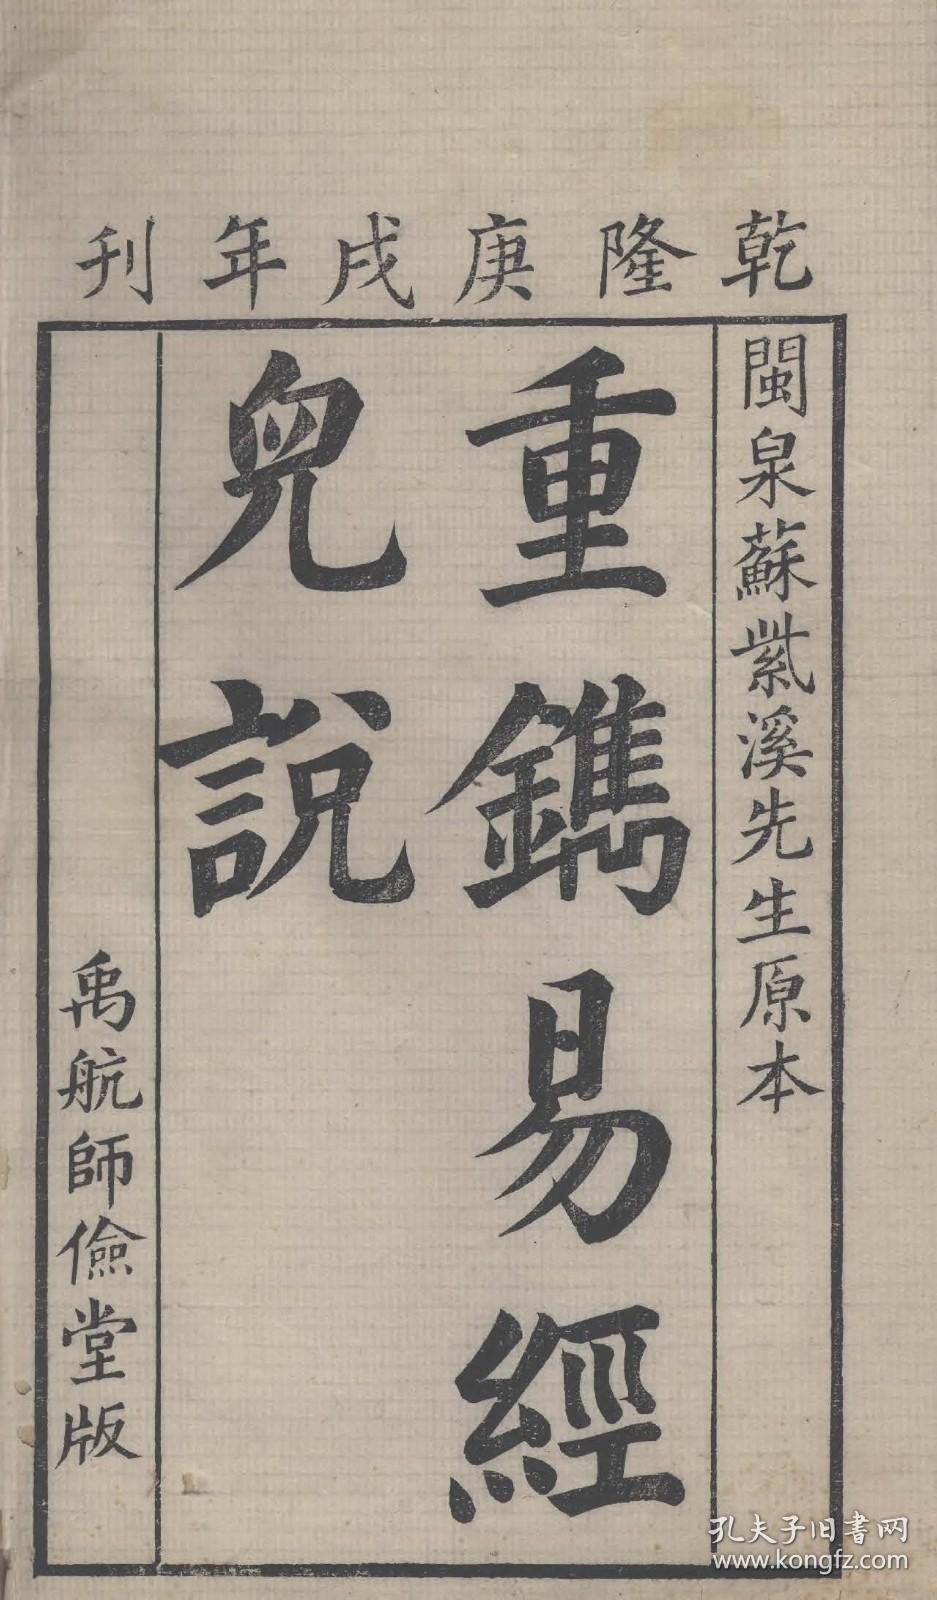 乾隆庚戌年刊
閩泉蘇紫溪先生原本
重鐫易經
皃說
禹航師儉堂版
孔夫子旧书网
www.kongfz.com